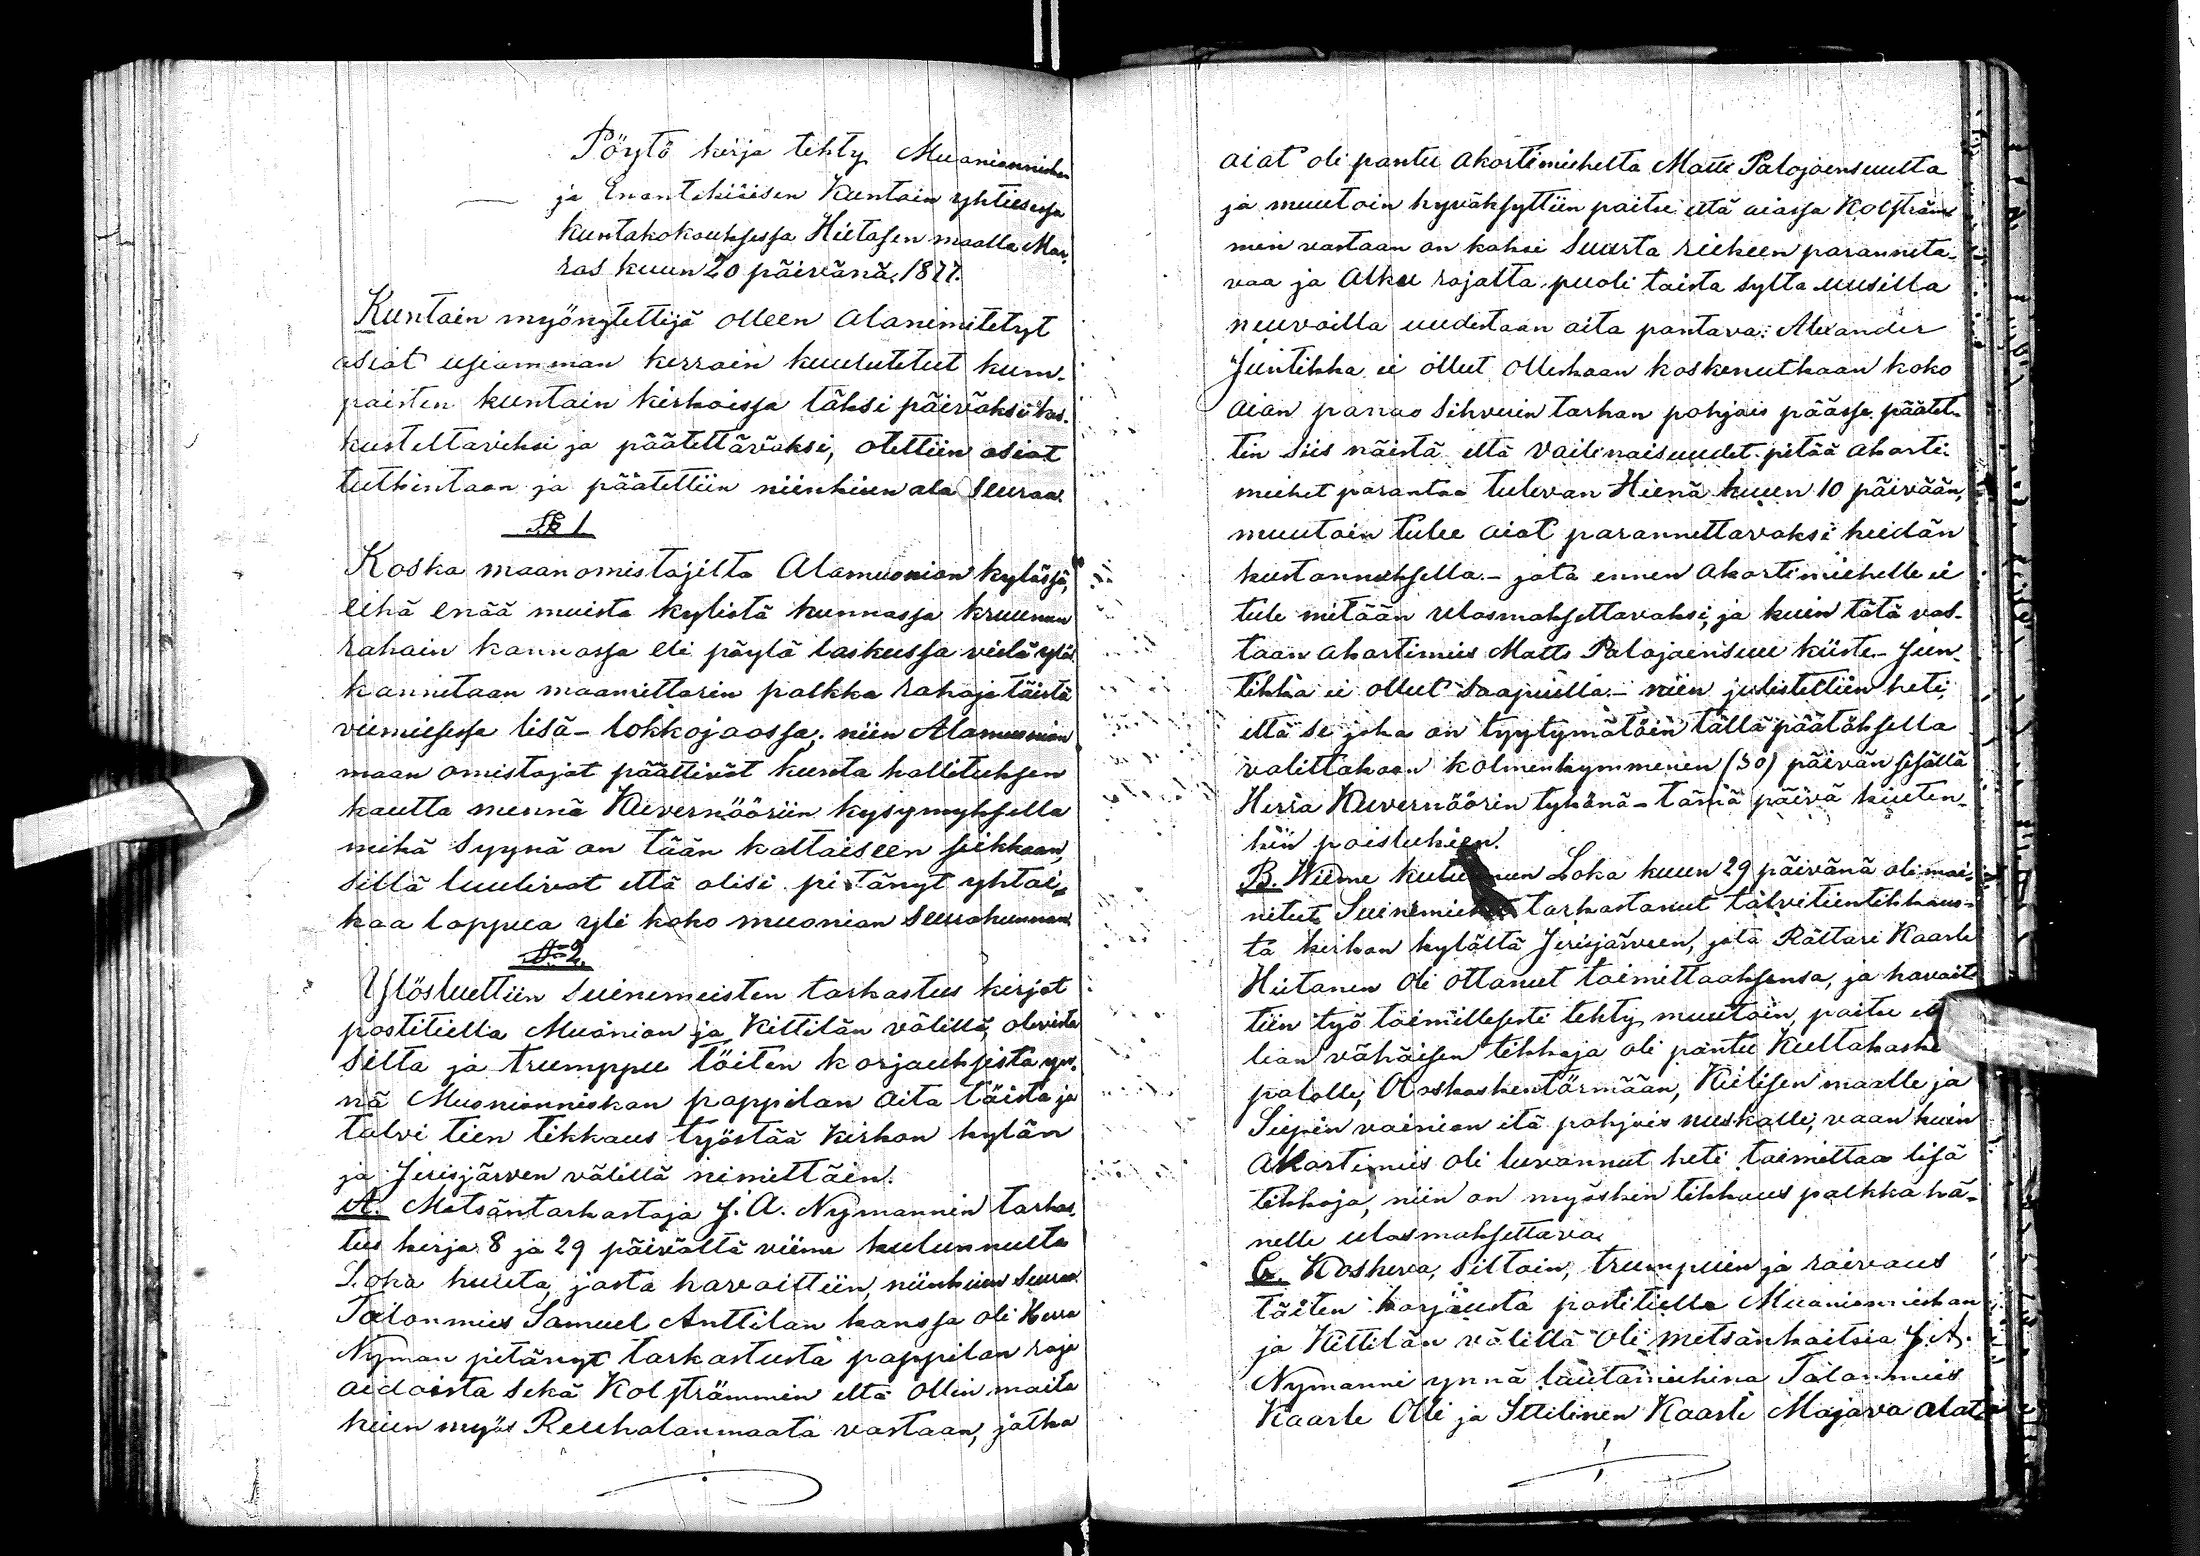 Pöytä kirja tehty Muonionniskan
ja Enontekiäisen Kuntain yhtiesessa
kuntakokouksessa Hietasen maalla Mar,
ras kuun 20 päivänä, 1877.
Kuntain myönytettijä olleen alanimitetyt
asiat usiamman kerrain kuulutetut kum-
paisten kuntain kirkoissa täksi päiväksi kes-
kusteltaviksi ja päätettäväksi, otettiin asiat
tutkintaan ja päätettiin niinkuin ala Seuraa.
§ 1
Koska maanomistajilta Alamuonion kylässä,
eikä enää muista kylistä kunnassa kruunun
rahain kannossa eli pöytä laskussa vielä ylös
kannetaan maamittarin palkka rahoja täistä
viimeisessä lisä-lohkojaossa; niin Alamuonion
maan omistajat päättivät kunta hallituksen
kautta mennä Kuvernööriin kysymyksella
mikä Syynä on tään kaltaiseen seikkaan,
Sillä luulivat että olisi pitänyt yhtai,
kaa loppua yli koko muonion Seurakunnan
§ 2.
Ylösluettiin Suinemeisten tarkastus kirjat
postitiella Muonion ja Kittilän välillä, olevista
Silta ja trumppu töiten korjauksista yn,
nä Muonionniskan pappilan Aita töistä ja
talvi tien tikkaus työstää Kirkon kylän
ja Jerisjärven välillä nimittäin.
A. Metsäntarkastaja J. A. Nymannin tarkas,
tus kirja 8 ja 29 päivältä viime kulunnutta
Loka kuuta, josta havaittiin, niinkuin Seuraa.
Talonmies Samuel Anttilan kanssa oli Herra
Nyman pitänyt tarkastusta pappilan raja
aidoista Sekä Kolströmmin että Ollin maita
kuin myös Reuhalanmaata vastaan, jotka
aiat oli pantu Akortimieheltä Matti Palojoensuulta
ja muutoin hyväksyttiin paitsi että aiassa Kolström
min vastaan on kaksi Suurta reikeen parannetta-
vaa ja Alku rajalta puoli toista Syltä uusilla
neuvoilla uudestaan aita pantava: Alexander
Juntikka ei ollut Ollenkaan koskenutkaan koko
Aian panao Sihvuin tarhan pohjois päässä päätet-
tin Siis näistä että Vailinaisuudet pitää akorti-
miehet parantaa tulevan Hienä kuun 10 päivään,
muutoin tulee aiat parannettavaksi heidän
kustannuksella - jota ennen Akortimiehelle ei
tule mitään ulosmaksettavaksi, ja kuin tätä vas-
taan akortimies Matts Palojoensuu kiiste - Jun-
tikka ei ollut Saapuilla - niin julistettiin heti,
että se joka on tyytymätöin tällä päätöksella
valittakoon kolmenkymmenen (30) päivän sisällä
Herra Kuvernöörin tykönä - tämä päivä kuiten-
kin poislukien.
B. Wiime kulunnen Loka kuun 29 päivänä oli mai-
nitut Suinemiehet tarkastanut talvitientikkaus-
ta kirkon kylältä Jerisjärveen, jota Rättäri Kaarle
Hietanen Oli ottanut toimittaaksensa, ja havait
tiin työ toimillisesti tehty muutoin, paitsi et
lian vähäisen tikkoja oli pantu Kultakoske
palolle, Olooskoskentörmään, Kiilisen maalle ja
Siepin vainion itä pohjois nurkalle, vaan kuin
Akortimies oli luvannut heti toimittaa lisä
tikkoja, niin on myöskin tikkaus palkka hä-
nelle ulosmaksettava.
C. Koskeva, Siltain, trumpuin ja raivaus
töiten korjausta postitiella Muonionniskan
ja Kittilän välillä oli metsänhaitsia J. A.
Nymanni ynnä lautamiehinä Talonmies
Kaarle Olli ja Itellinen Kaarle Majava alat